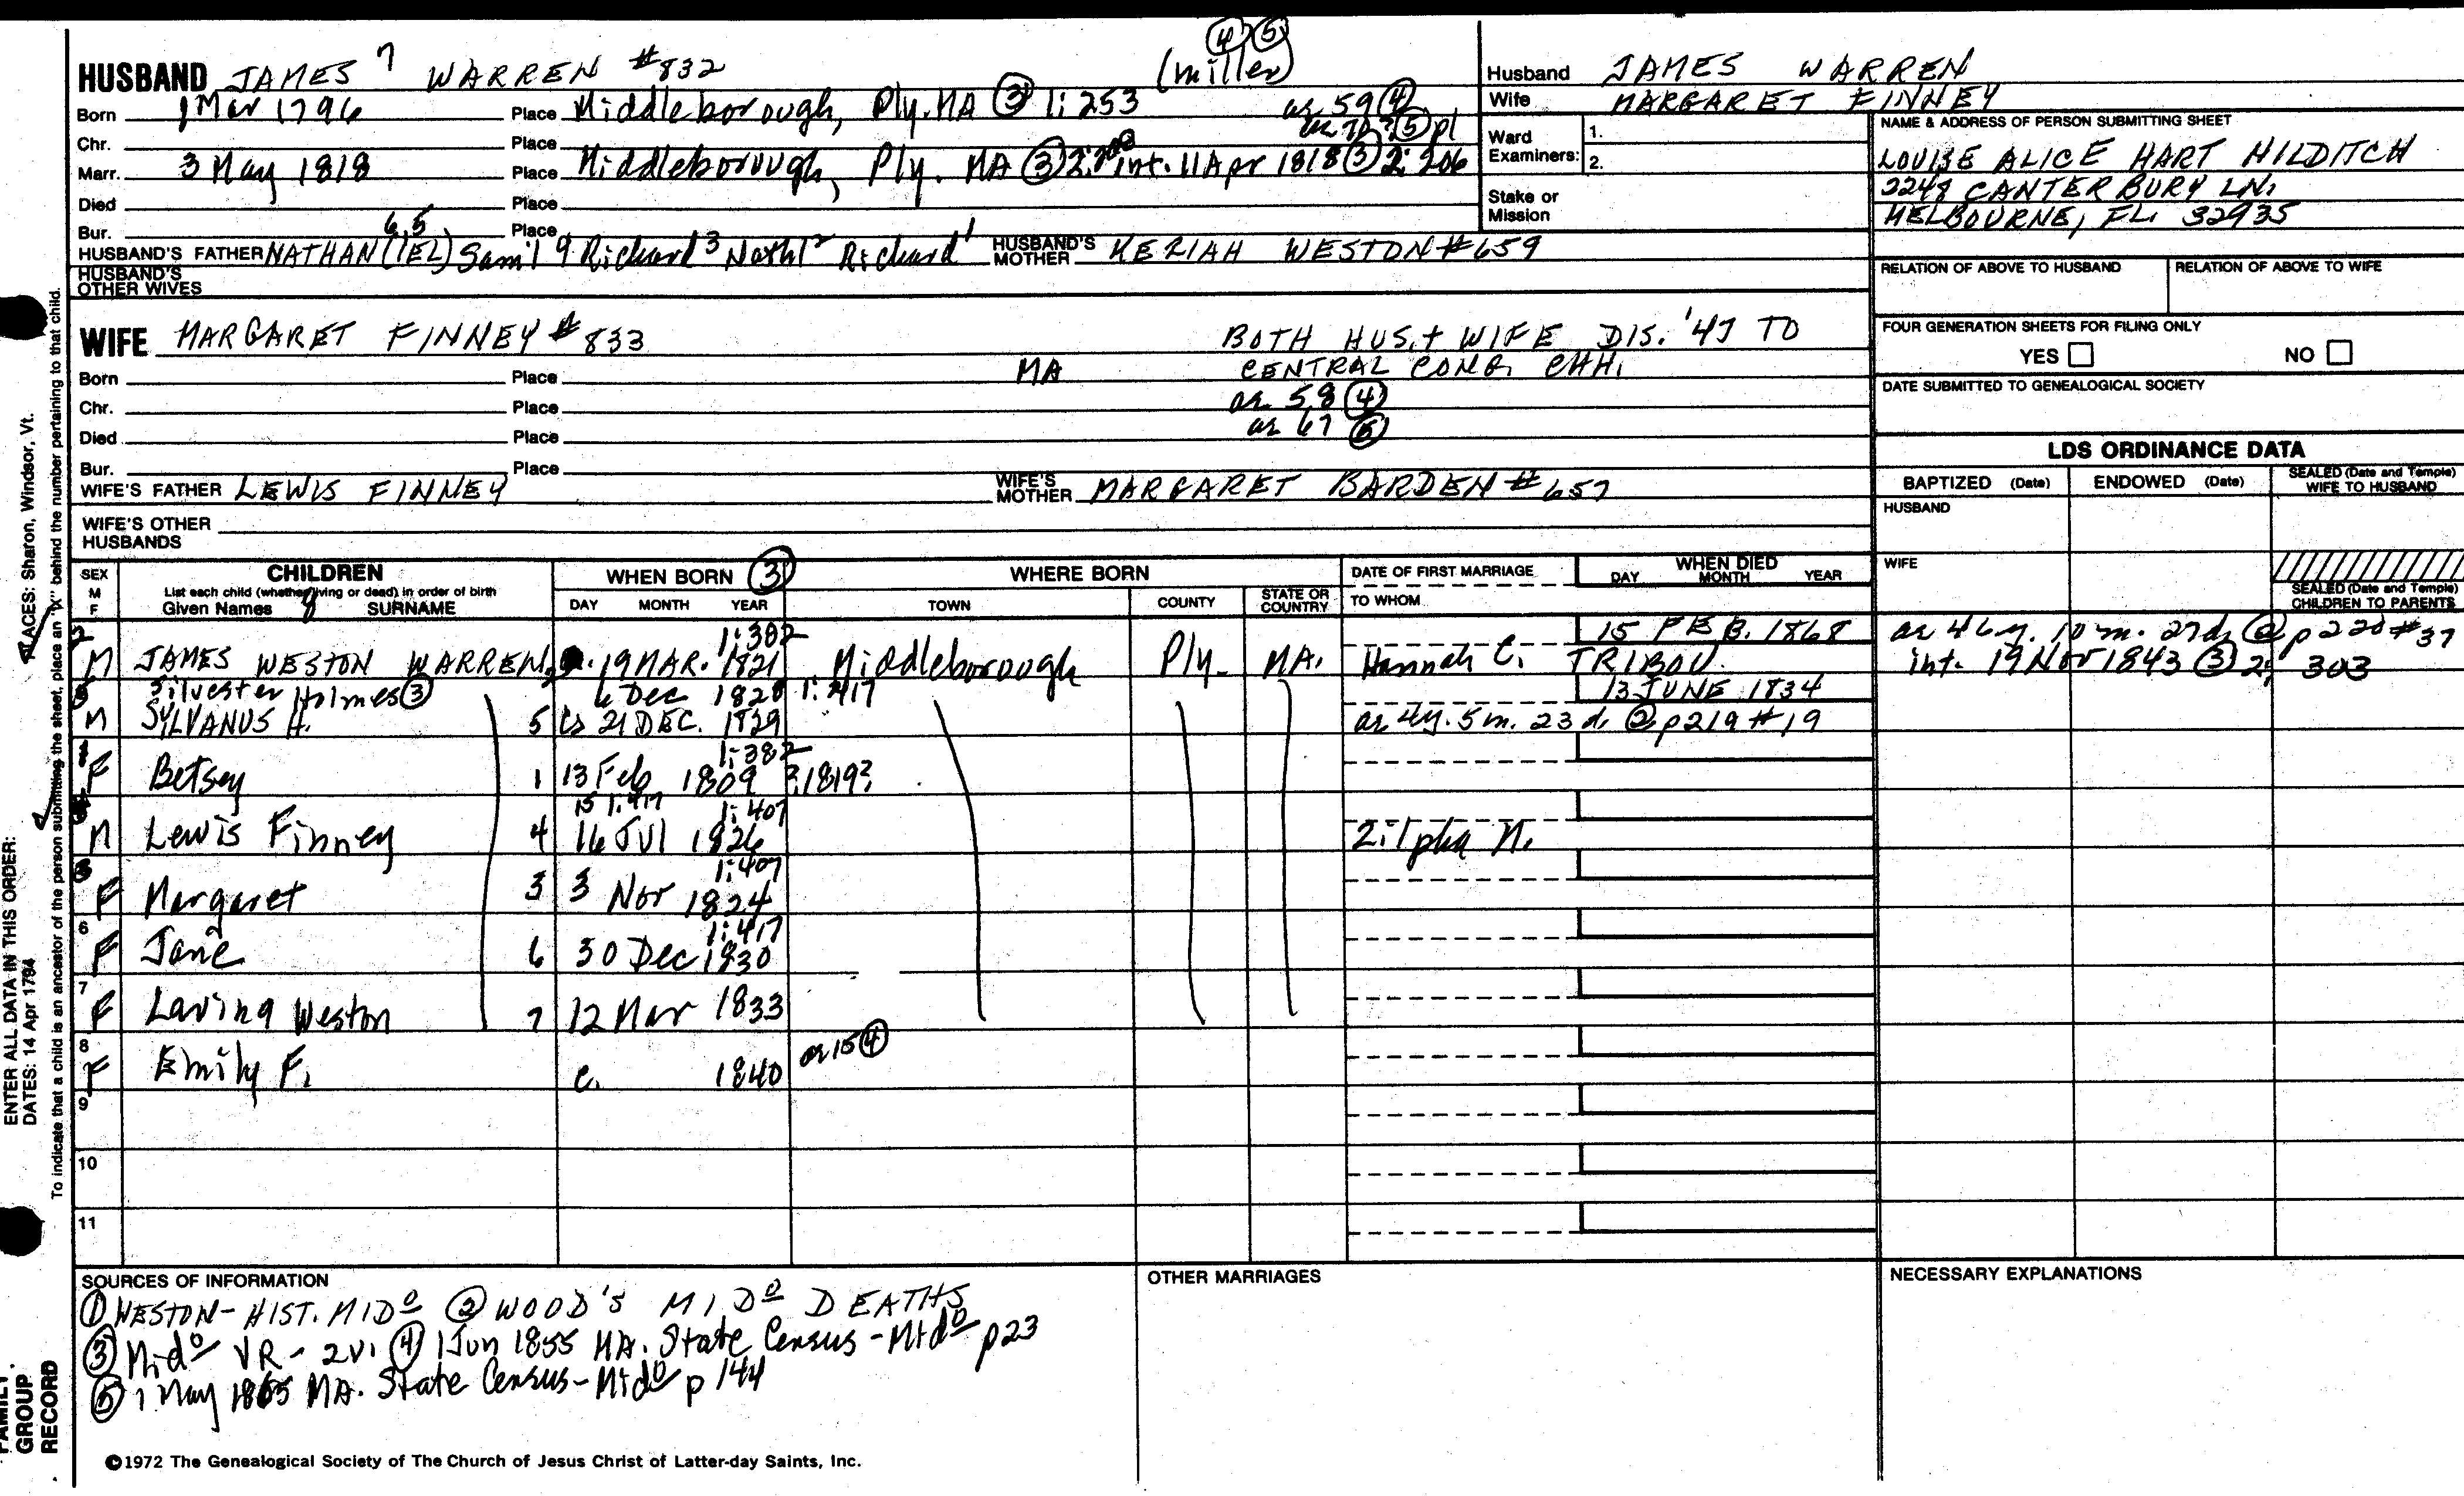 ④ ⑤
HUSBAND JAMES 7 WARREN #832 (miller)
Born 1 Mar 1796 Place Middleborough, Ply. MA ③ 1:253 ae 59 ④
Chr. Place ae 70 ? ⑤ pl
Marr. 3 May 1818 Place Middleborough, Ply. MA ③ 2: int. 11 Apr 1818 ③ 2:206
Died Place
Bur. Place
HUSBAND'S FATHER NATHAN(IEL) 6,5 Sam'l 4 Richard 3 Nath'l 2 Richard 1 HUSBAND'S MOTHER KEZIAH WESTON #659
HUSBAND'S OTHER WIVES
WIFE MARGARET FINNEY #833 BOTH HUS. + WIFE DIS. '47 TO
CENTRAL CONG. CHH.
Born Place MA
Chr. Place ae 58 ④
Died Place ae 67 ⑤
Bur. Place
WIFE'S FATHER LEWIS FINNEY WIFE'S MOTHER MARGARET BARDEN #657
WIFE'S OTHER HUSBANDS
Husband JAMES WARREN
Wife MARGARET FINNEY
Ward Examiners: 1.
2.
Stake or Mission
NAME & ADDRESS OF PERSON SUBMITTING SHEET
LOUISE ALICE HART HILDITCH
2248 CANTERBURY LN.
MELBOURNE, FL. 32935
RELATION OF ABOVE TO HUSBAND RELATION OF ABOVE TO WIFE
FOUR GENERATION SHEETS FOR FILING ONLY
YES NO
DATE SUBMITTED TO GENEALOGICAL SOCIETY
LDS ORDINANCE DATA
BAPTIZED (Date) ENDOWED (Date) SEALED (Date and Temple) WIFE TO HUSBAND
HUSBAND
WIFE
SEALED (Date and Temple) CHILDREN TO PARENTS
SEX M F
CHILDREN
List each child (whether living or dead) in order of birth
Given Names 8 SURNAME
WHEN BORN ③
DAY MONTH YEAR
WHERE BORN
TOWN COUNTY STATE OR COUNTRY
DATE OF FIRST MARRIAGE
TO WHOM
WHEN DIED
DAY MONTH YEAR
2 1:382 15 FEB. 1868 ae 46 y. 10 m. 27 d. ② p 220 #37
M JAMES WESTON WARREN 2 19 MAR. 1821 Middleborough Ply. MA. Hannah C. TRIBOU int. 19 Nov 1843 ③ 2: 303
5 Silvester Holmes ③ 6 Dec 1828 1:417 13 JUNE 1834
M SYLVANUS H. 5 21 DEC. 1829 ae 4 y. 5 m. 23 d. ② p 219 #19
1 1:382
F Betsey 1 13 Feb 1809 ?1819?
4 15 1:417 1:407
M Lewis Finney 4 16 Jul 1826 Zilpha N.
3 1:407
F Margaret 3 3 Nov 1824
6 1:417
F Jane 6 30 Dec 1830
7
F Lavina Weston 7 12 Mar 1833
8 ae 15 ④
F Emily F. c. 1840
9
10
11
SOURCES OF INFORMATION
① WESTON - HIST. MIDo ② WOOD'S MIDo DEATHS
③ Mido VR - 2v. ④ 1 Jun 1855 MA. State Census - Mido p 23
⑤ 1 May 1865 MA. State Census - Mido p 144
OTHER MARRIAGES
NECESSARY EXPLANATIONS
©1972 The Genealogical Society of The Church of Jesus Christ of Latter-day Saints, Inc.
PLACES: Sharon, Windsor, Vt.
To indicate that a child is an ancestor of the person submitting the sheet, place an "X" behind the number pertaining to that child.
ENTER ALL DATA IN THIS ORDER:
DATES: 14 Apr 1794
FAMILY GROUP RECORD